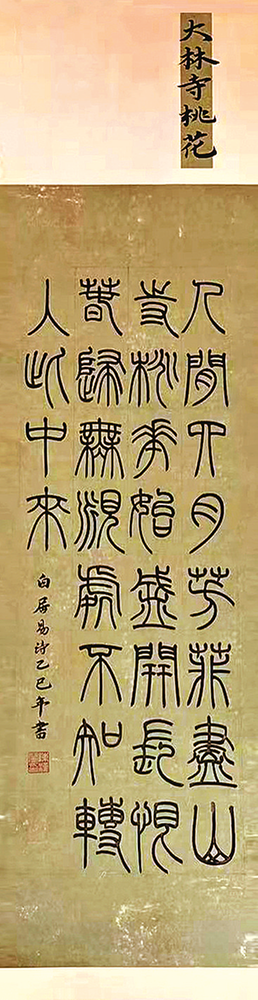 大林寺桃花
人間四月芳菲盡山
寺桃花始盛開長恨
春歸無覓處不知轉
入此中來
白居易詩乙巳年書